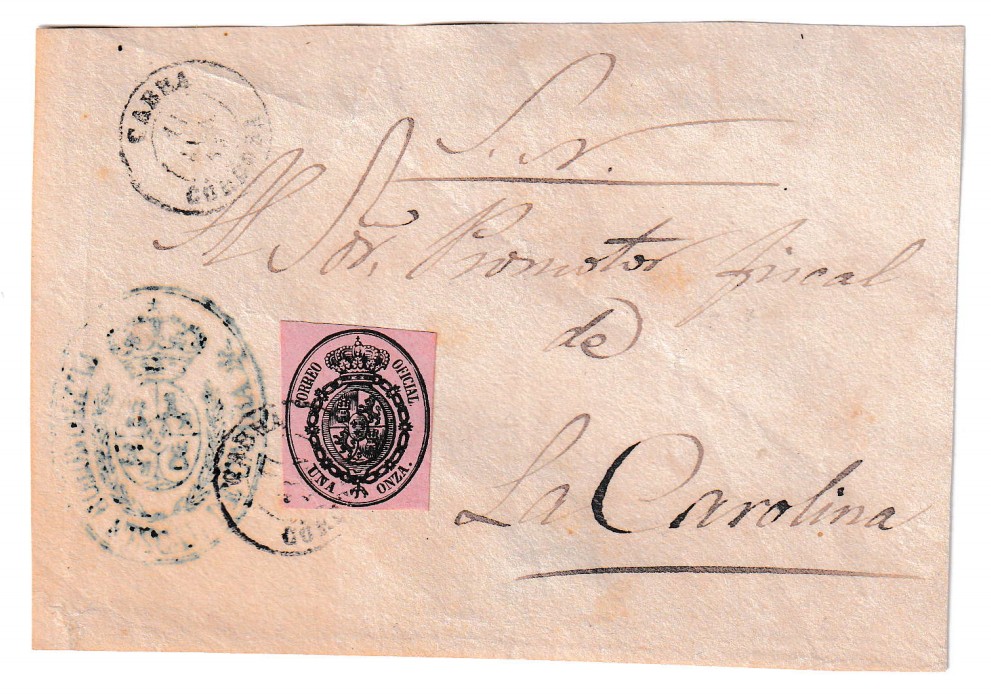 CABRA
CORDOBA
S. N.
Al Sor. Promotor fiscal
de
La Carolina
CORREO OFICIAL
UNA ONZA.
CABRA